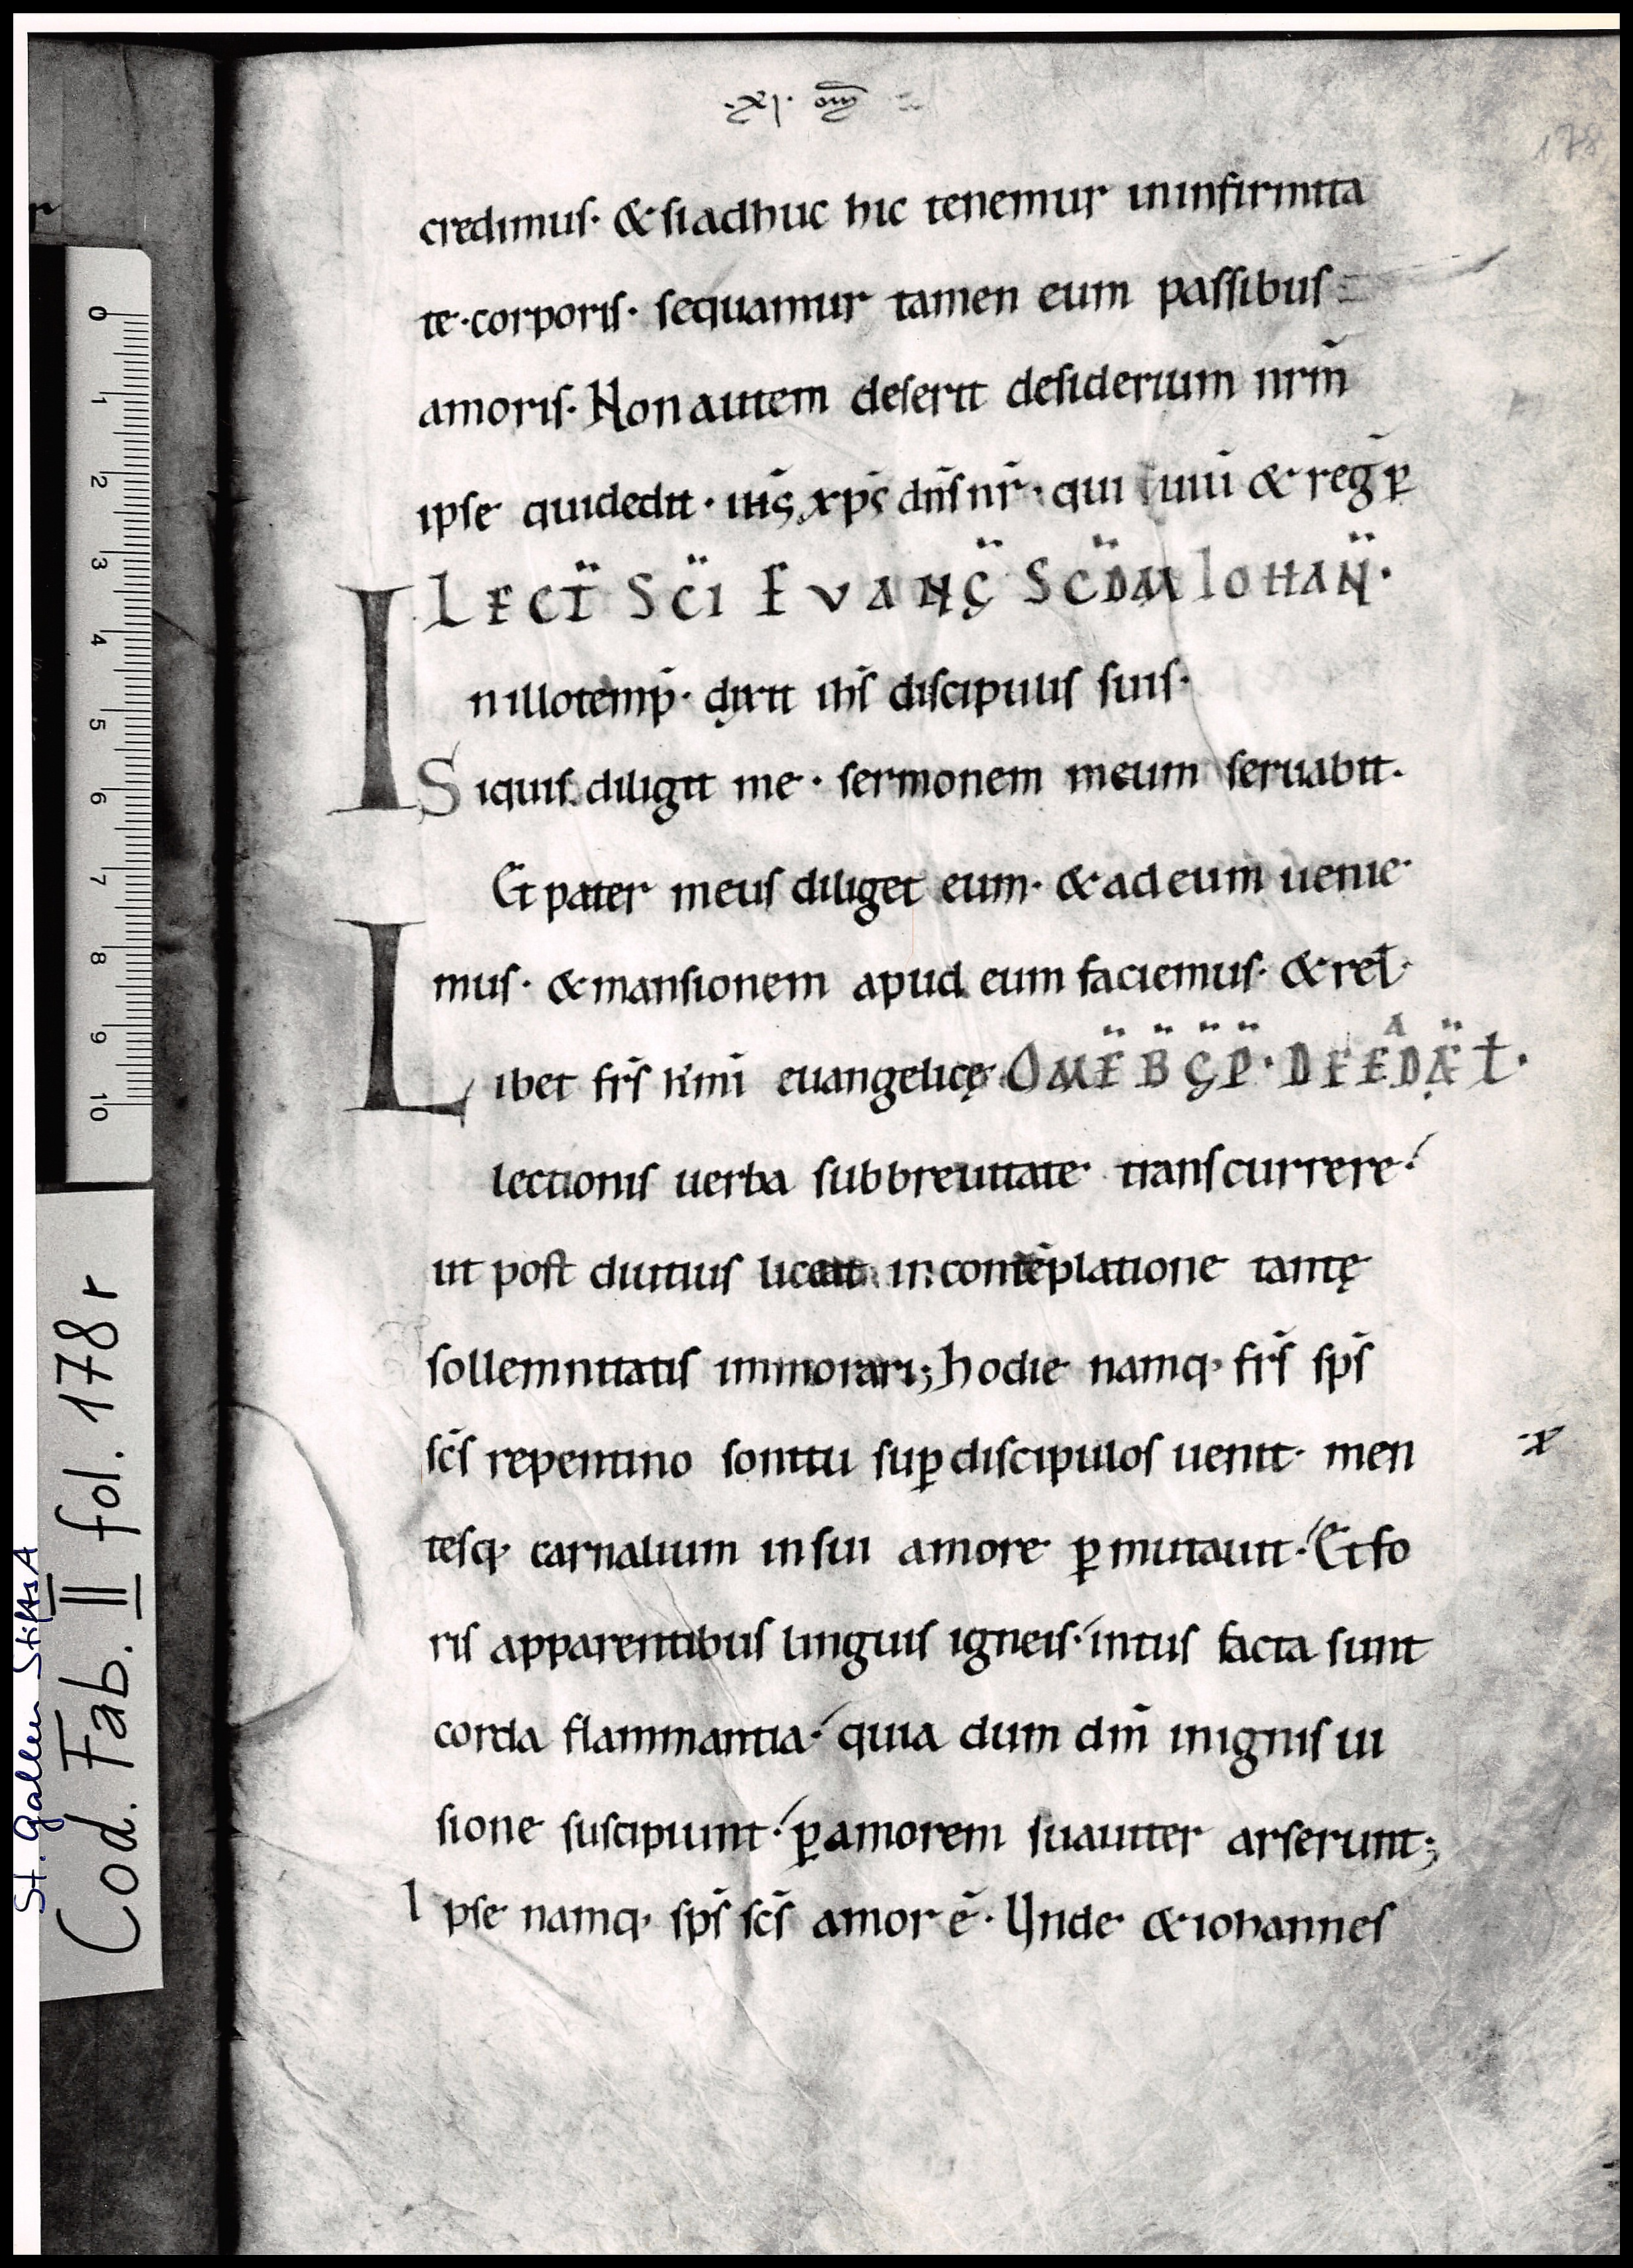 ·xi·
178
credimus· & si adhuc hic tenemur in infirmita
te· corporis· sequamur tamen eum passibus
amoris· Non autem deserit desiderium nrm̄
ipse qui dedit· ih̄s xp̄s dn̄s nr̄· qui uiū & reḡ ꝑ
LECT̈ SC̈I EVANG̈ SCD̈M IOHAN̈·
In illo temp̄· dixit ih̄s discipulis suis·
Si quis diligit me· sermonem meum seruabit·
Et pater meus diliget eum· & ad eum uenie
mus· & mansionem apud eum faciemus· & rel·
Libet fr̄s k̄mi euangelicę OMË B̈ G̈P̈· DE EÂDÄ Ł·
lectionis uerba sub breuitate transcurrere·
ut post diutius liceat in contēplatione tantę
sollemnitatis immorari; hodie namq· fr̄s sp̄s
sc̄s repentino sonitu suꝑ discipulos uenit· men
tesq· carnalium in sui amore ꝑmutauit· Et fo
ris apparentibus linguis igneis· intus facta sunt
corda flammantia· quia dum dm̄ in ignis ui
sione suscipiunt· ꝑ amorem suauiter arserunt;
Ipse namq· sp̄s sc̄s amor ē· Unde & iohannes
·x
0 1 2 3 4 5 6 7 8 9 10
Cod. Fab. II fol. 178 r
St. Gallen StiftsA